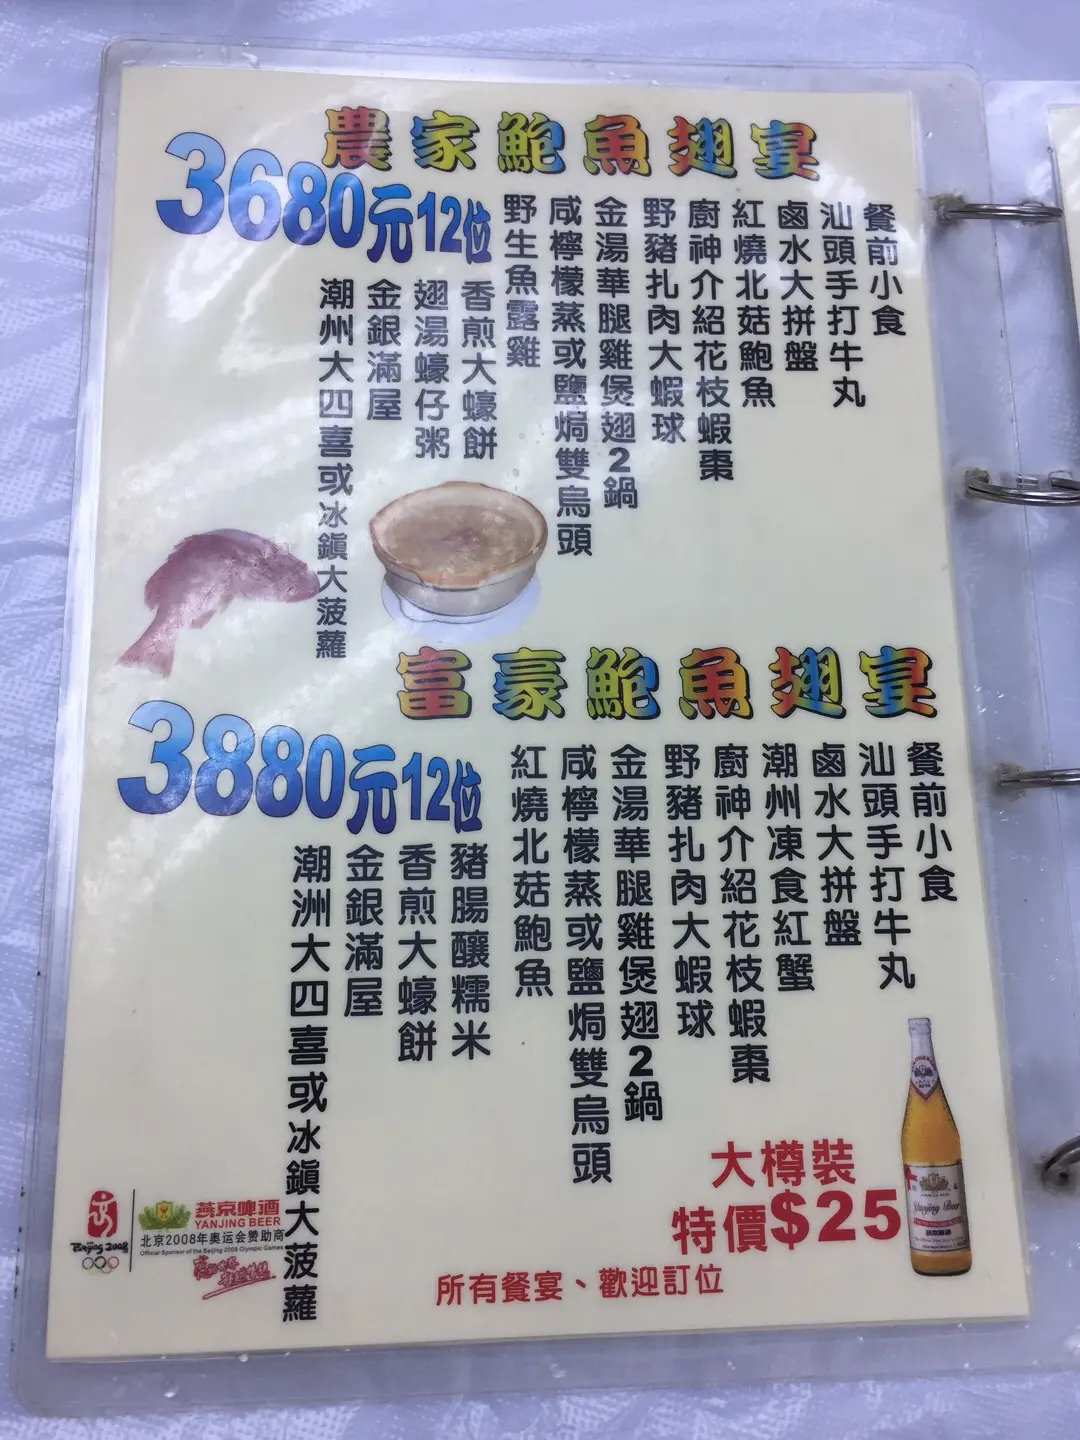 農家鮑魚翅宴
3680元12位
餐前小食
汕頭手打牛丸
鹵水大拼盤
紅燒北菇鮑魚
廚神介紹花枝蝦棗
野豬扎肉大蝦球
金湯華腿雞煲翅2鍋
咸檸檬蒸或鹽焗雙烏頭
野生魚露雞
香煎大蠔餅
翅湯蠔仔粥
金銀滿屋
潮州大四喜或冰鎮大菠蘿
富豪鮑魚翅宴
3880元12位
餐前小食
汕頭手打牛丸
鹵水大拼盤
潮州凍食紅蟹
廚神介紹花枝蝦棗
野豬扎肉大蝦球
金湯華腿雞煲翅2鍋
咸檸檬蒸或鹽焗雙烏頭
紅燒北菇鮑魚
豬腸釀糯米
香煎大蠔餅
金銀滿屋
潮洲大四喜或冰鎮大菠蘿
大樽裝
特價$25
Yanjing Beer
所有餐宴、歡迎訂位
Beijing 2008
燕京啤酒
YANJING BEER
北京2008年奥运会赞助商
Official Sponsor of the Beijing 2008 Olympic Games